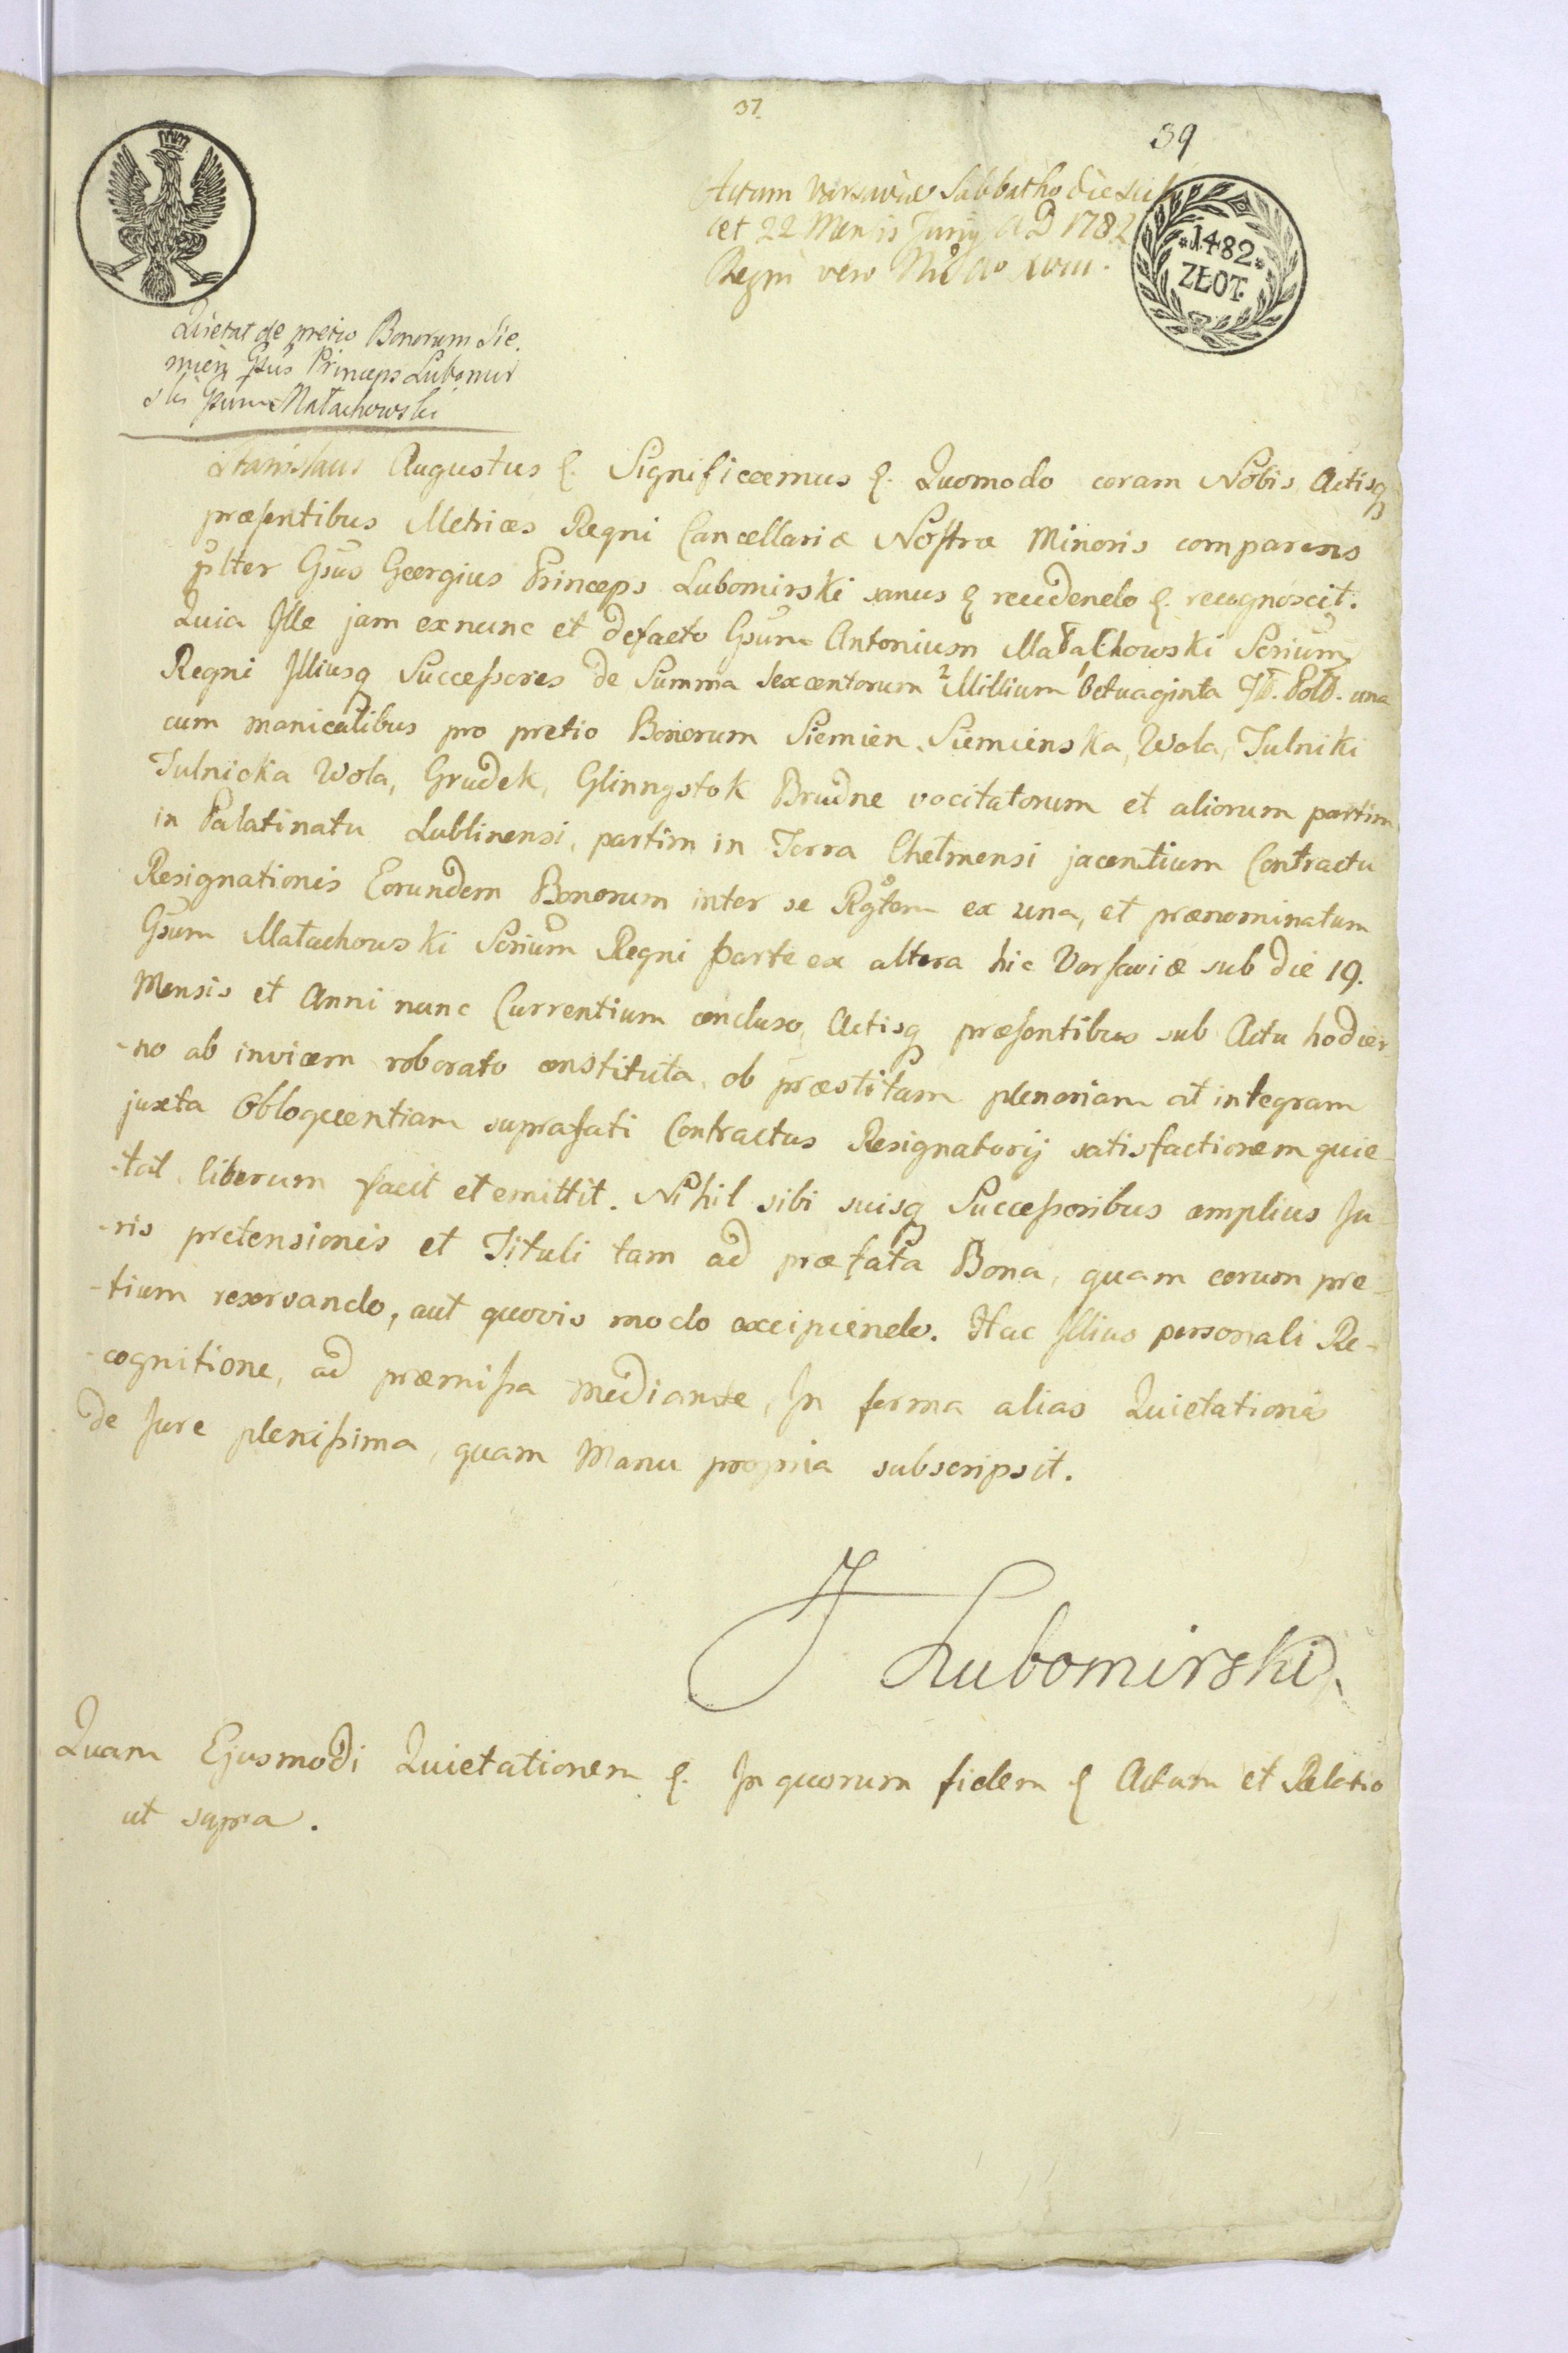 37.
39
Actum Varsaviæ Sabbatho die scili
cet 22 Mensis Junij A D 1782
Regni vero Nri Ao XVIII.
*1482*
ZŁOT.
Quietat de pretio Bonorum Sie,
mień Gsus Princeps Lubomir
ski Gsum Małachowski
Stanislaus Augustus &. Significamus &. Quomodo coram Nobis Actisq
præsentibus Metrices Regni Cancellariæ Nostræ Minoris comparens
psltter Gsus Georgius Princeps Lubomirski sanus & recedendo &. recognoscit.
Quia Ille jam ex nunc et defacto Gsum Antonium Małachowski Scrium
Regni Illiusq Successores de Summa sexcentorum 2 Millium 1 octuaginta fl. Pol. una
cum manicalibus pro pretio Bonorum Siemien, Siemienska, Wola, Tulniki
Tulnicka Wola, Grudek, Glinnystok Brudne vocitatorum et aliorum partim
in Palatinatu Lublinensi, partim in Terra Chełmensi jacentium Contractu
Resignationis Eorundem Bonorum inter se Rgtem ex una, et prænominatum
Gsum Małachowski Scrium Regni parte ex altera hic Varsaviæ sub die 19.
Mensis et Anni nunc Currentium concluso, Actisq præsentibus sub Actu hodier-
-no ab invicem roborato constituta, ob præstitam plenariam et integram
juxta Obloquentiam suprafati Contractus Resignatorij satisfactionem quie-
-tat, liberum facit et emittit. Nihil sibi suisq Successoribus amplius Ju-
-ris pretensionis et Tituli tam ad præfata Bona, quam eorum pre-
-tium reservando, aut quovis modo excipiendo. Hac Illius personali Re-
-cognitione, ad præmissa mediante, In forma alias Quietationis
de Jure plenissima, quam Manu propria subscripsit.
J Lubomirski
Quam Ejusmodi Quietationem &. In quorum fidem & Actum et Relatio
ut supra.